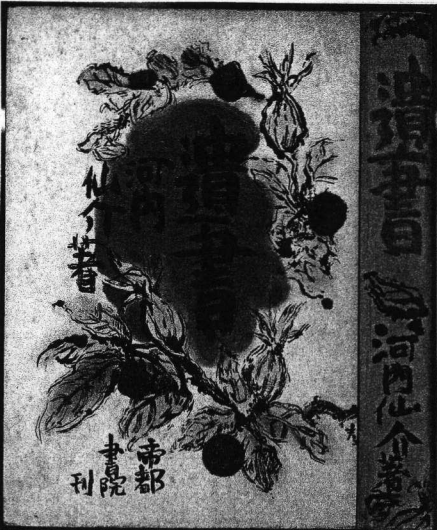 遺書
河内
仙介著
帝都
書院
刊
遺書
河内仙介著